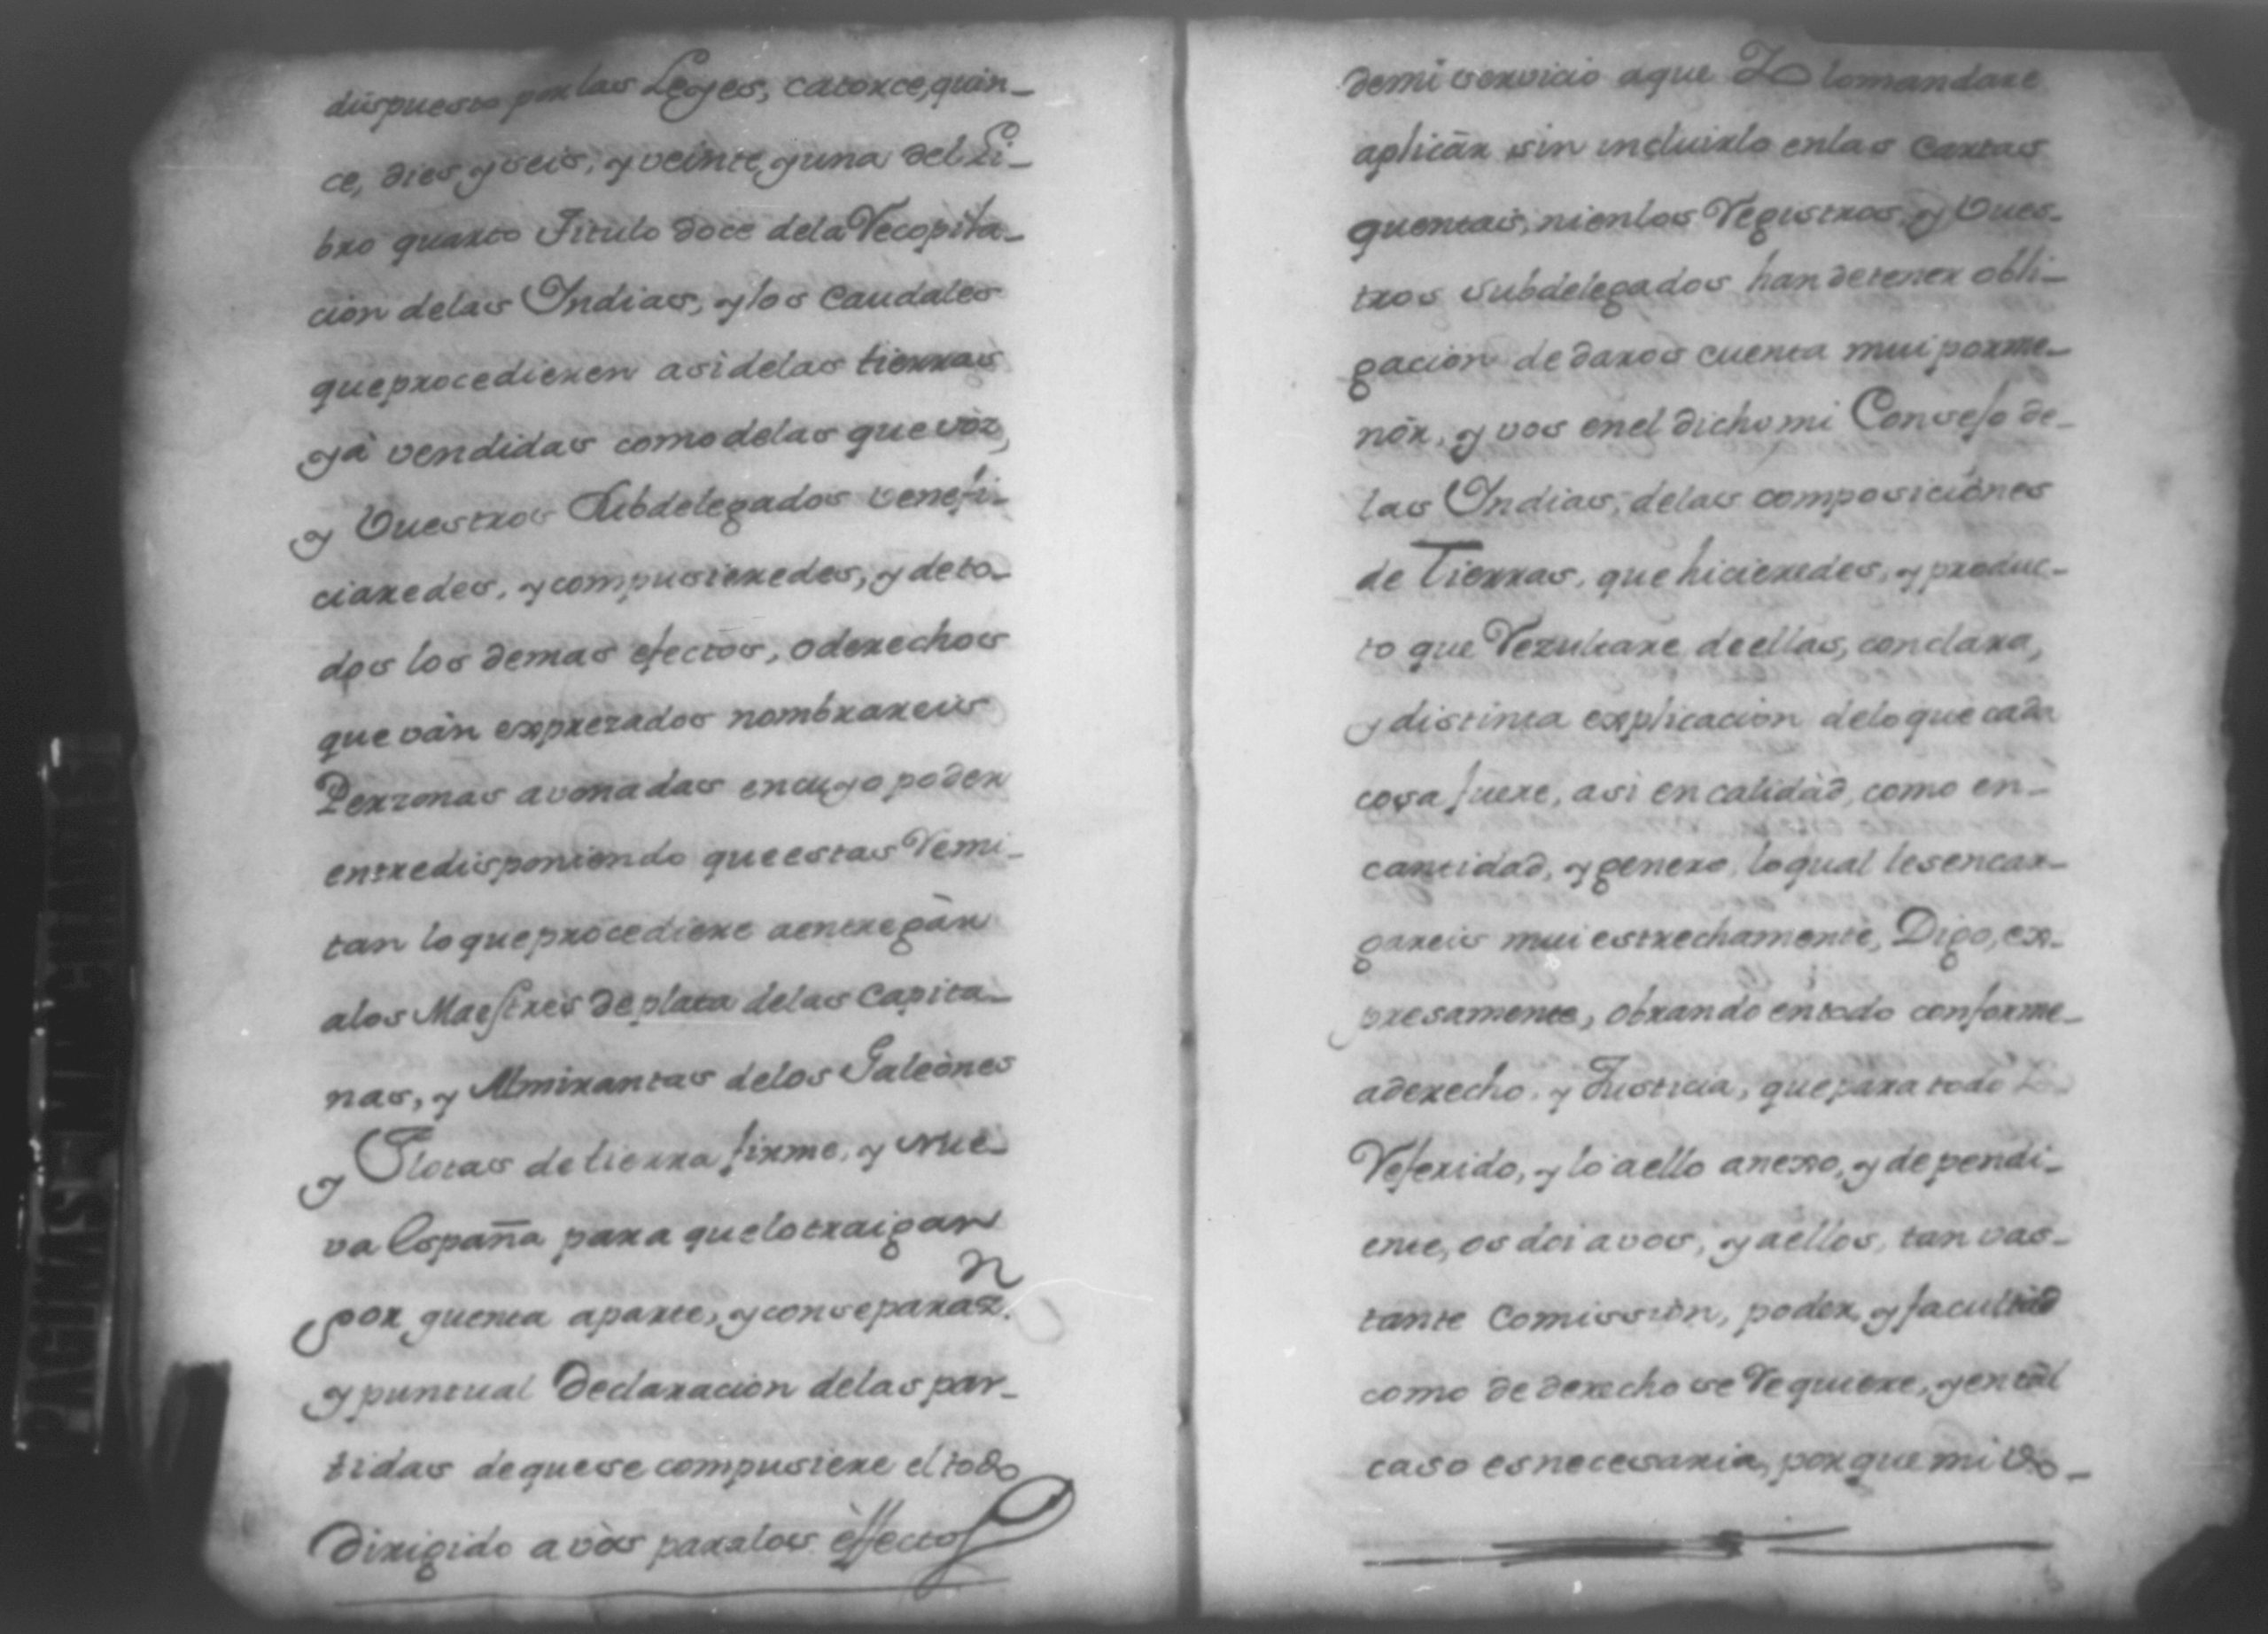 dispuesto por las Leyes, catorce, quin-
ce, dies y seis, y veinte, y una del Li-
bro quarto Titulo doce dela Recopila-
cion delas Indias, y los Caudales
que procedieren asi delas tierras
ya vendidas como delas que vòz,
y Vuestros Subdelegados venefi-
ciaredes, y compusieredes, y de to-
dos los demas efectos, o derechos
que vàn exprezados nombrareis
Perzonas avonadas en cuyo poder
entre disponiendo que estas Remi-
tan lo que procediere a entregàr
alos Maestres de plata delas Capita-
nas, y Almirantas delos Galeònes
y Flotas de tierra firme, y Nue-
va España para que lo traigan
por quenta aparte, y con separaz.n
y puntual Declaracion delas par-
tidas de que se compusiere el todo
Dirigido a vòs para los èffectos
de mi servicio a que Yo lo mandare
aplicàr sin incluirlo en las Cartas
quentas, ni en los Registros, y Vues-
tros subdelegados han de tener obli-
gacion de daros cuenta mui porme-
nòr, y vos en el dicho mi Consejo de-
las Indias, delas composiciònes
de Tierras, que hicieredes, y produc-
to que Rezultare de ellas, con clara,
y distinta explicacion delo que cada
cosa fuere, asi en calidàd, como en-
cantidad, y genero, lo qual les encar-
gareis mui estrechamente, Digo, ex-
presamente, obrando en todo conforme-
a derecho, y Justicia, que para todo Lo
Referido, y lo a ello anexo, y dependi-
ente, os doi a vos, y a ellos, tan vas-
tante Comissiòn, poder, y facultad
como de derecho se Requiere, y en tàl
caso es necesaria, por que mi Vo-